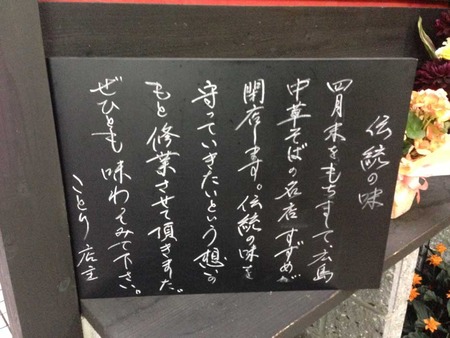 伝統の味
四月末をもちまして、広島
中華そばの名店すずめが
閉店します。伝統の味を
守っていきたいという想いの
もと修業させて頂きました。
ぜひとも味わってみて下さい。
ことり店主